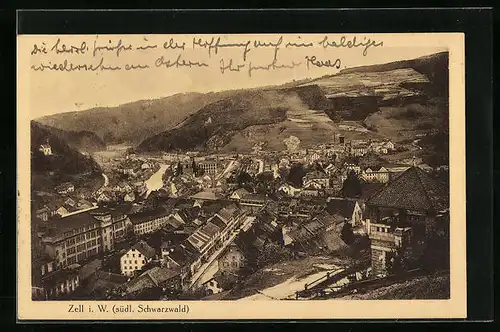 die herzl. Grüße in der Hoffnung auf ein baldiges
wiedersehen an Ostern Ihr
Zell i. W. (südl. Schwarzwald)